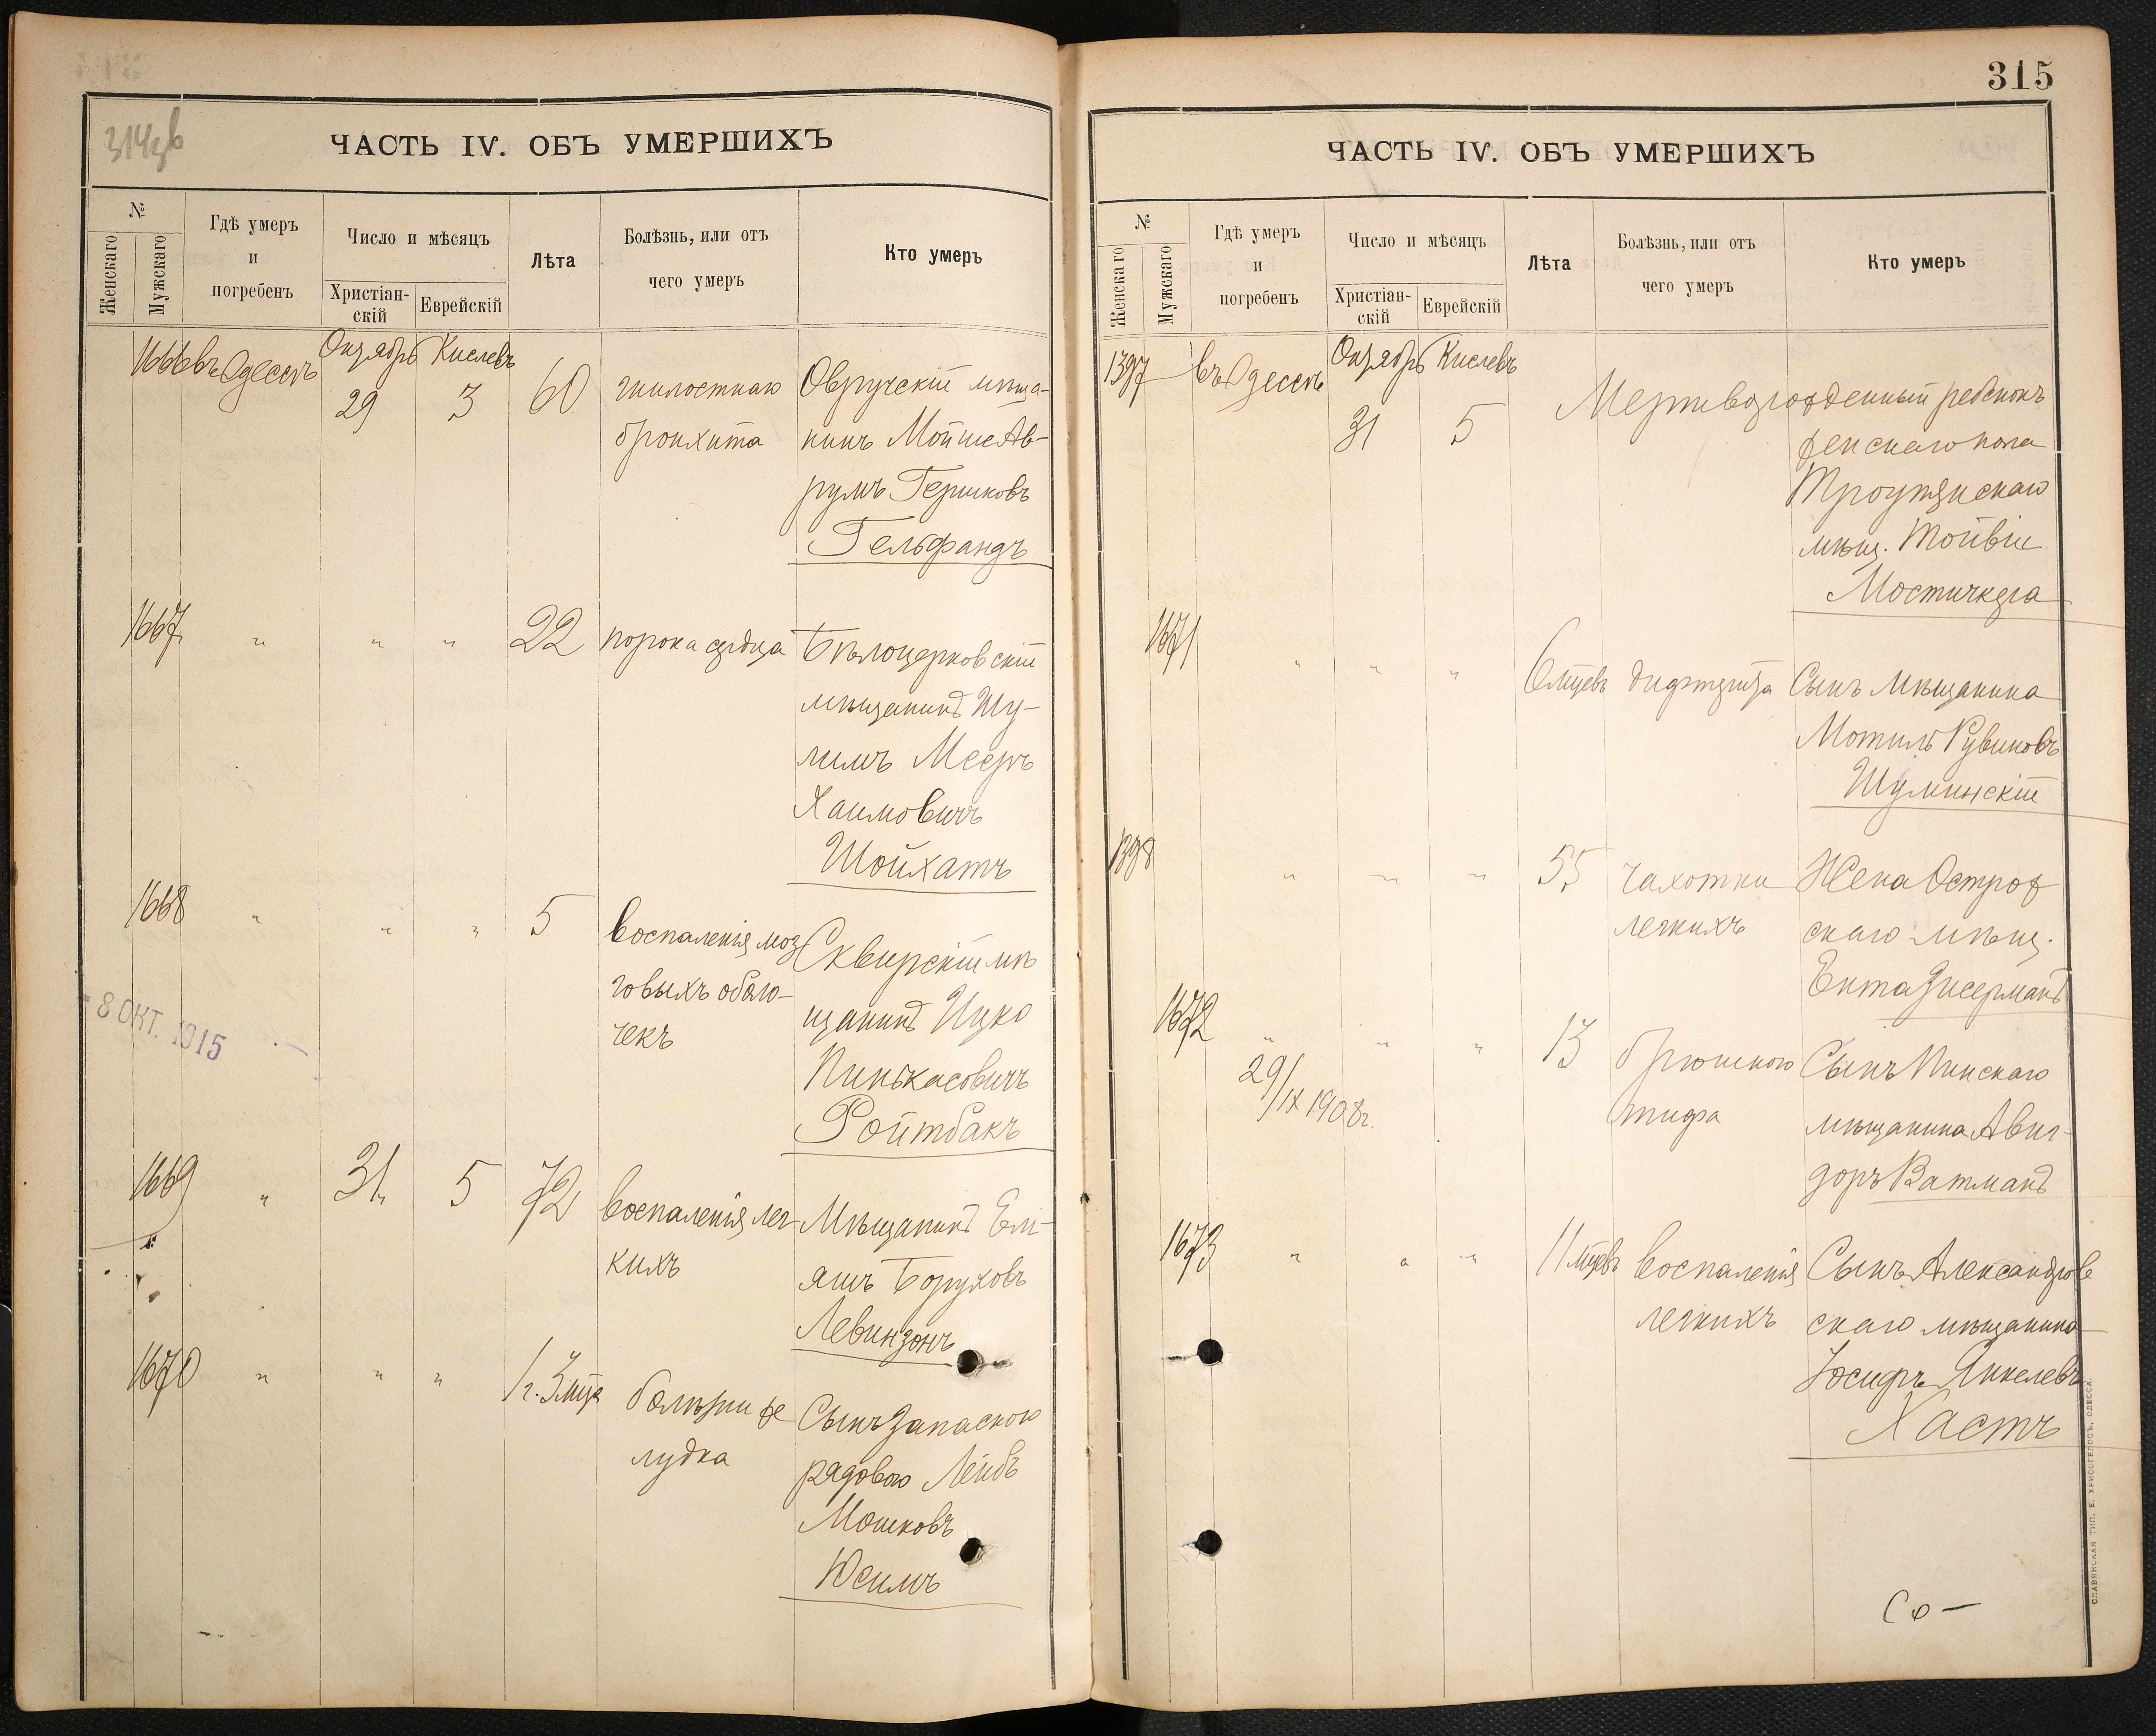 314зв
ЧАСТЬ IV. ОБЪ УМЕРШИХЪ
№
Женскаго
Мужскаго
Гдѣ умеръ
и
погребенъ
Число и мѣсяцъ
Христіан-
скій
Еврейскій
Лѣта
Болѣзнь, или отъ
чего умеръ
Кто умеръ
1666 въ Одессѣ Октябрь 29 Кислевъ 3 60 гнилостнаго Овручскій мѣща-
бронхита нинъ Мойше Ав-
румъ Гершковъ
Гельфандъ
1667 " " " 22 порока сердца Бѣлоцерковскій
мѣщанинъ Шу-
лимъ Мееръ
Хаимовичъ
Шойхатъ
1668 " " " 5 воспаленія моз Сквирскій мѣ
говыхъ обало- щанинъ Ицко
чекъ Пинькасовичъ
Ройтбакъ
8 ОКТ. 1915
1669 " 31 5 72 воспаленія лег- Мѣщанинъ Елі-
кихъ яшъ Боруховъ
Левинзонъ
1670 " " " 1 г. 3 мца болѣзни же Сынъ запасного
лудка рядового Лейбъ
Мошковъ
Юсимъ
315
ЧАСТЬ IV. ОБЪ УМЕРШИХЪ
№
Женскаго
Мужскаго
Гдѣ умеръ
и
погребенъ
Число и мѣсяцъ
Христіан-
скій
Еврейскій
Лѣта
Болѣзнь, или отъ
чего умеръ
Кто умеръ
1397 въ Одессѣ Октябрь 31 Кислевъ 5 Мертворожденный ребенокъ
женскаго пола
Троуянскаго
мѣщ. Тойвіи
1671 " " " 6 мцевъ дифтерита Сынъ мѣщанина
Мотиль Рувиновъ
Шуминскій
1398 " " " 55 чахотки Жена Острож
легкихъ скаго мѣщ.
Ента Зисерманъ
1672 " " " 13 брюшного Сынъ Пинскаго
29/IX 1908 г.
тифа мѣщанина Авиг-
доръ Ватманъ
1673 " " " 11 мцевъ воспаленія Сынъ Александров
легкихъ скаго мѣщанина
Іосифъ Янкелевъ
Хастъ
СЛАВЯНСКАЯ ТИП. Е. ХРИСОГЕЛОСЪ, ОДЕССА.